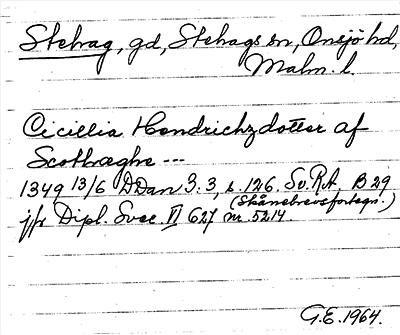 Stehag, gd, Stehags sn, Onsjö hd,
Malm. l.
Cicillia Hendrichzdotter af
Scothæghe ---
1349 13/6 DDan 3:3, s. 126. Sv.RA, B 29
(Skånebrevsförtegn.)
jfr Dipl. Svec. VI 627 nr. 5214
G.E. 1964.